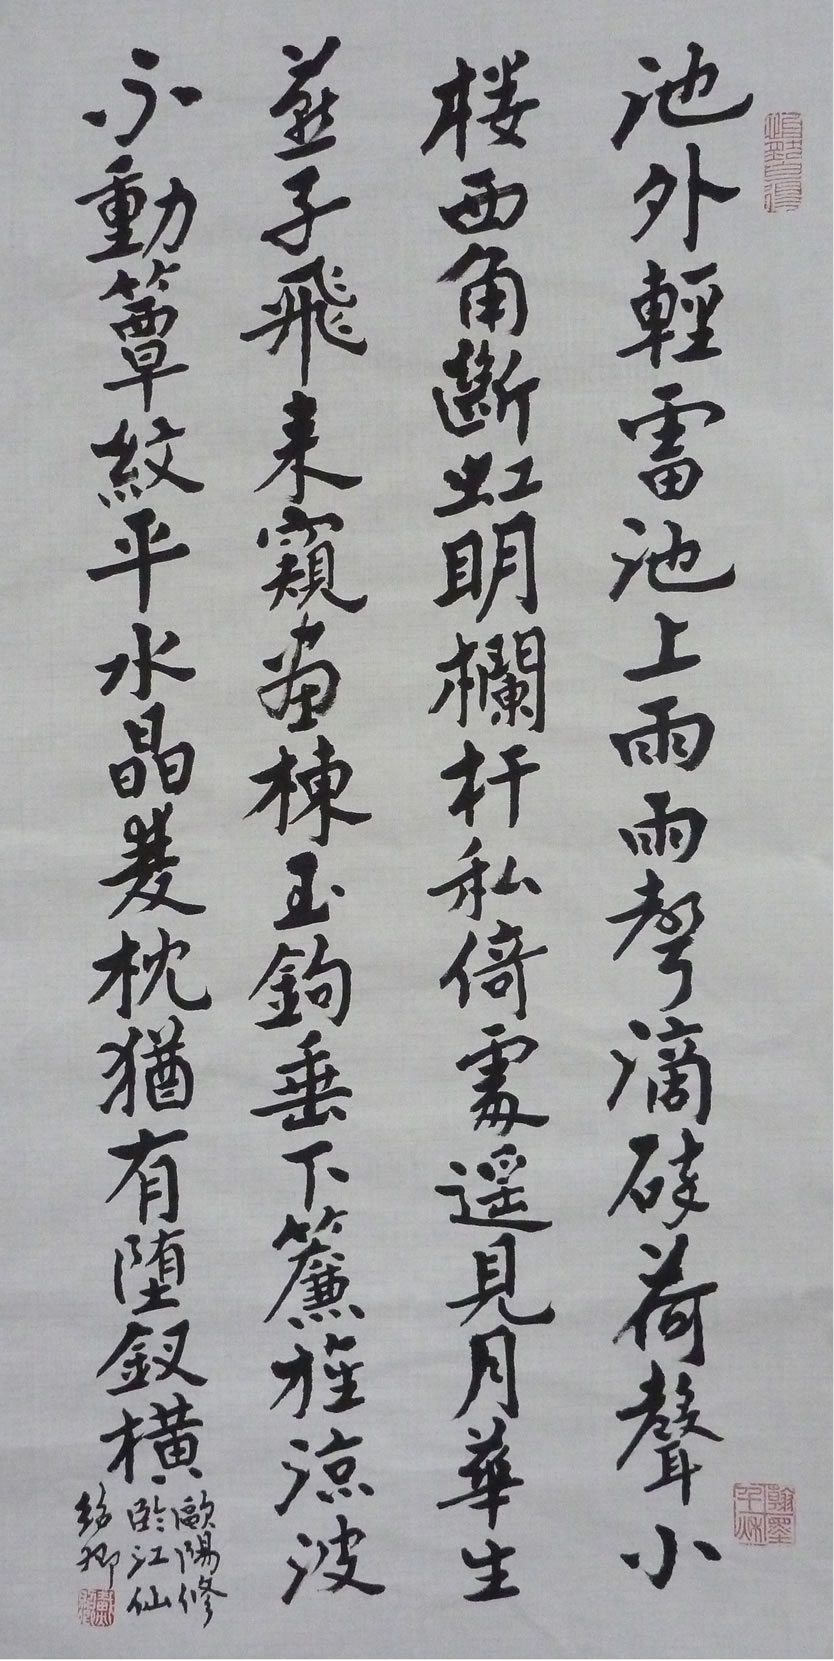 池外輕雷池上雨雨声滴砕荷聲小
楼西角斷虹明欄杆私倚處遥見月華生
燕子飛来窺画棟玉鉤垂下簾旌涼波
不動簟紋平水晶雙枕猶有堕釵横
歐陽修
臨江仙
翰墨千秋